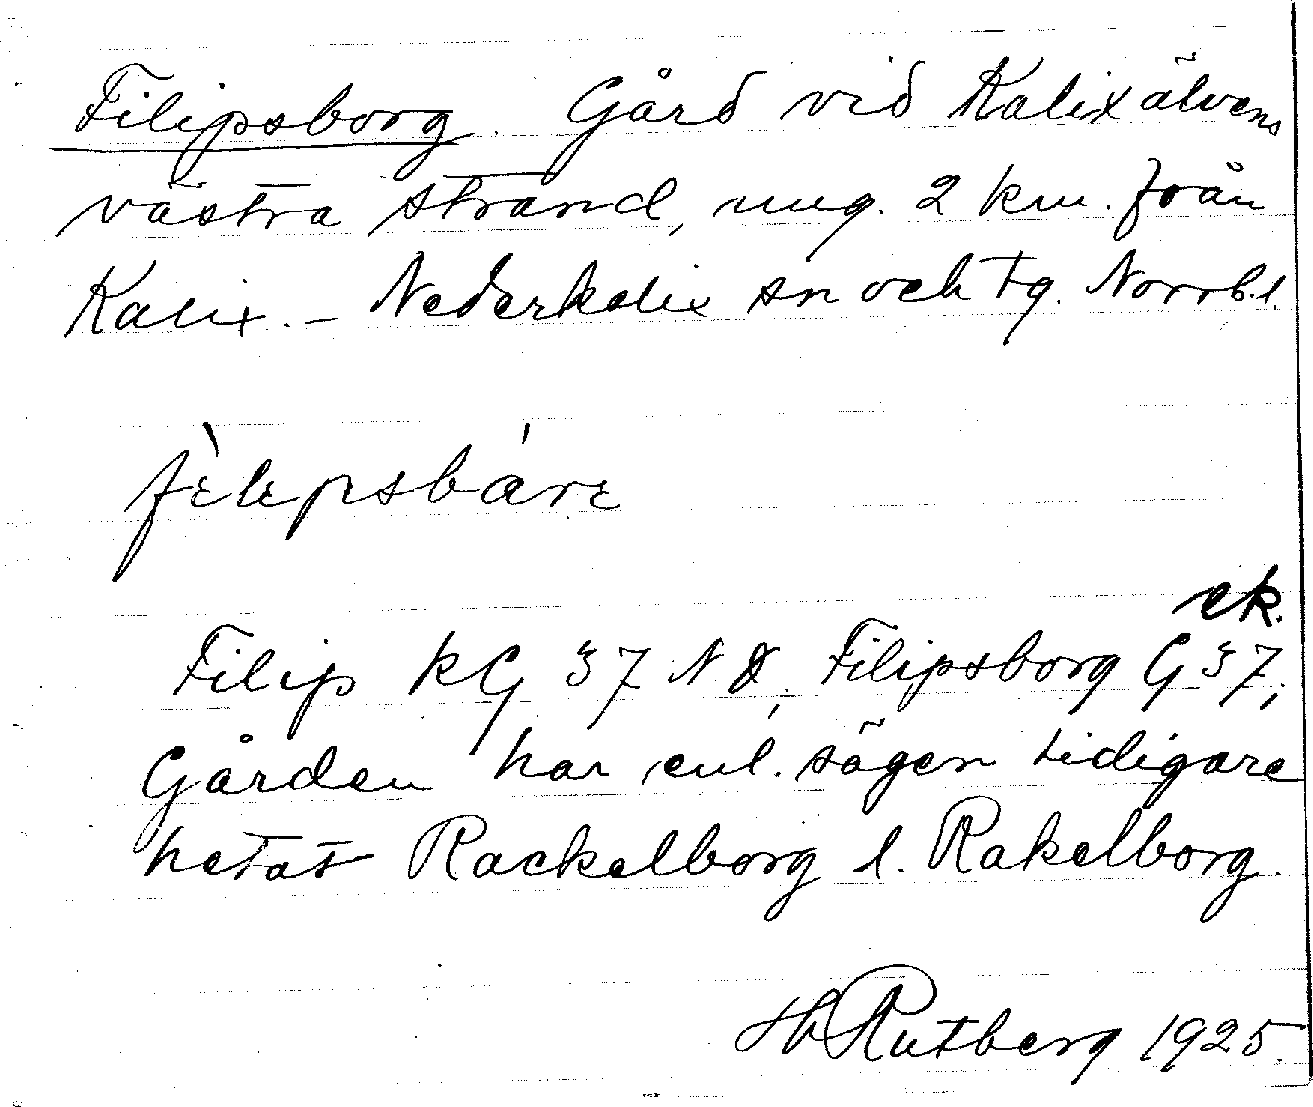 Filipsborg. Gård vid Kalixälvens
västra strand, ung. 2 km. från
Kalix. – Nederkalix sn och tg. Norrb.l.
fìlipsbárɛ
ek.
Filip KG 37 N Filipsborg G 37;
Gården har enl. sägen tidigare
hetat Rackelborg l. Rakelborg.
Rutberg 1925.